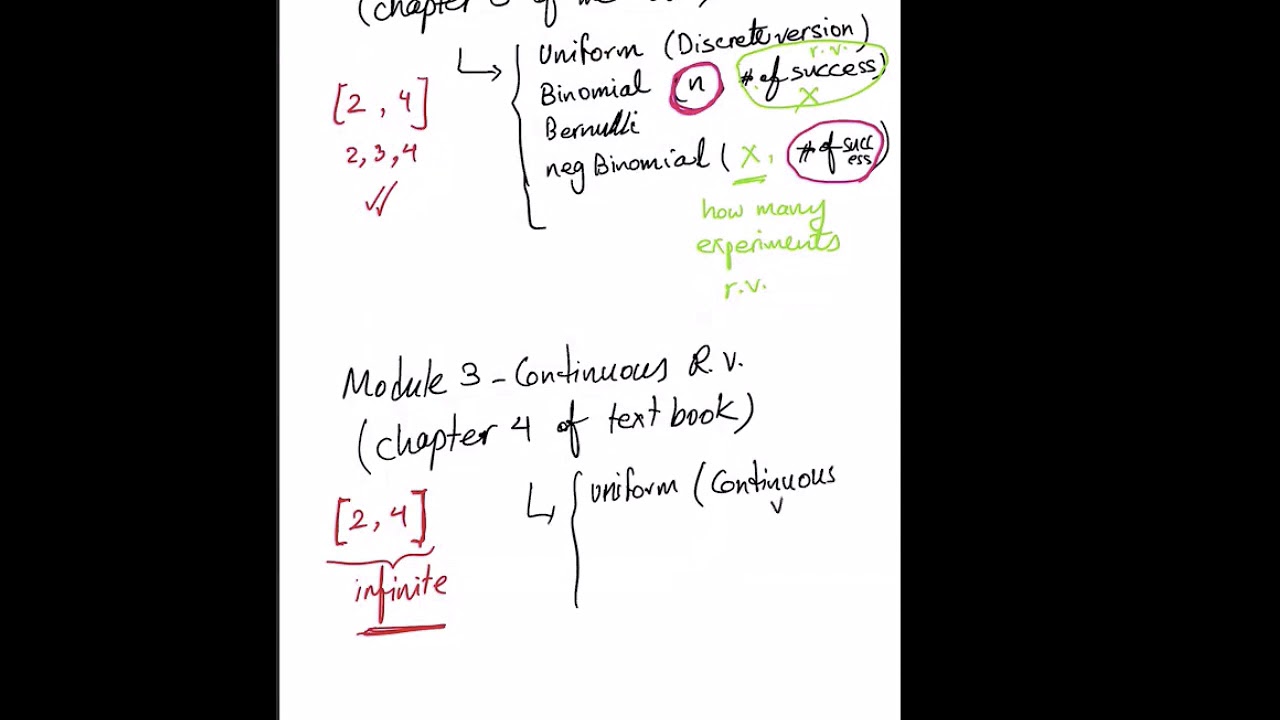 (chapter
Uniform (Discrete version)
r.v.
Binomial (n # of success)
X
Bernulli
neg Binomial ( X, # of succ
ess)
how many
experiments
r.v.
[2, 4]
2, 3, 4
Module 3 - Continuous R.v.
(chapter 4 of text book)
uniform (Continuous
v
[2, 4]
infinite